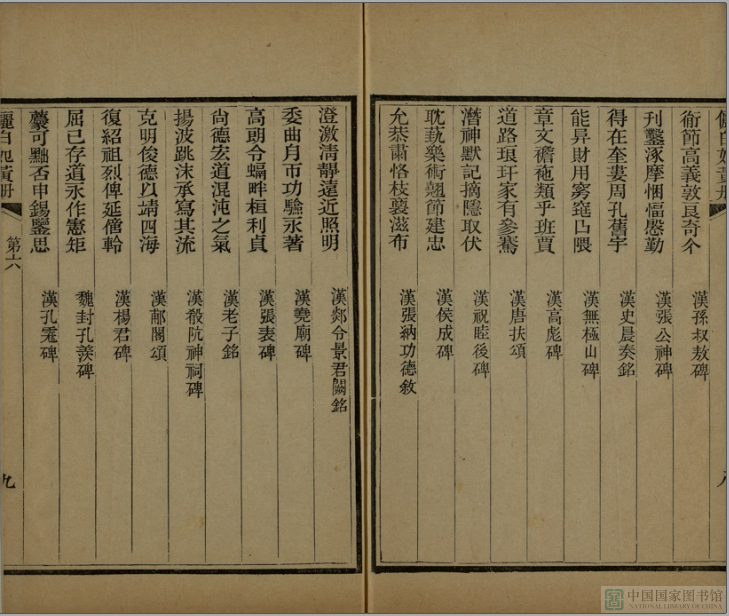 銜節高義敦良奇介 漢孫叔敖碑
刊鑿涿摩悃愊慇勤 漢張公神碑
得在奎婁周孔舊宇 漢史晨奏銘
能昇財用窮窿凸隈 漢無極山碑
章文襜袘類乎班賈 漢高彪碑
道路琅玕家有參騫 漢唐扶頌
潛神默記摘隱取伏 漢祝睦後碑
耽蓺樂術翹節建忠 漢侯成碑
允恭肅恪枝裔滋布 漢張納功德敘
八
澄激清靜遠近照明 漢郯令景君闕銘
委曲月市功驗永著 漢堯廟碑
高朗令 畔桓利貞 漢張表碑
尚德宏道混沌之氣 漢老子銘
揚波跳沫承寫其流 漢殽阬神祠碑
克明俊德以靖四海 漢郙閣頌
復紹祖烈俾延僖軨 漢楊君碑
屈己存道永作憲矩 魏封孔羨碑
可黜否申錫鑒思 漢孔霆碑
儷白妃黃册 第六
九
中国国家图书馆
NATIONAL LIBRARY OF CHINA